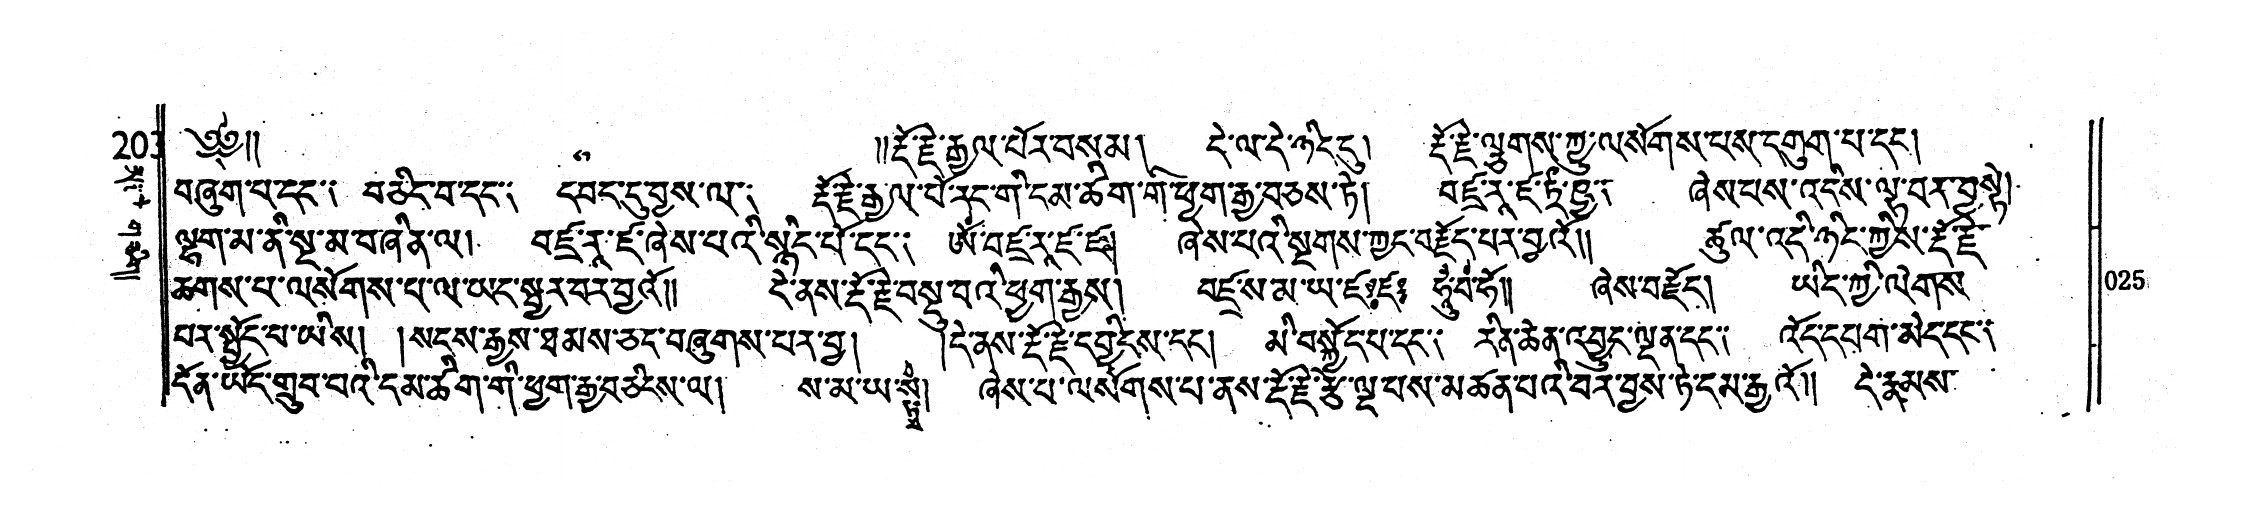 203 ༄༅།། །།རྡོ་རྗེ་རྒྱལ་པོར་བས་མ། དེ་ལ་དེ་ཉིད་དུ། རྡོ་རྗེ་ལྕགས་ཀྱུ་ལ་སོགས་པས་དགུག་པ་དང།
བཞུག་པ་དང་༑ བཅིང་བ་དང་༑ དབང་དུ་བྱས་ལ་༑ རྡོ་རྗེ་རྒྱལ་པོ་རང་གི་དམ་ཚིག་གི་ཕྱག་རྒྱ་བཅས་ཏེ། བཛྲ་རཱ་ཛ་ ཞེས་པས་འདིས་ལྟ་བར་བྱ་སྟེ།
ལྷག་མ་ནི་སྔ་མ་བཞིན་ལ། བཛྲ་རཱ་ཛ་ཞེས་པའི་སྙིང་པོ་དང་༑ ཨོཾ་བཛྲ་རཱ་ཛ་ཛཿ། ཞེས་པའི་སྔགས་ཀྱང་བརྗོད་པར་བྱའོ།། ཚུལ་འདི་ཉིད་ཀྱིས་རྡོ་རྗེ་
ཆགས་པ་ལ་སོགས་པ་ལ་ཡང་སྦྱར་བར་བྱའོ།། དེ་ནས་རྡོ་རྗེ་བསྡུ་བའི་ཕྱག་རྒྱས། བཛྲ་ས་མ་ཡ་ཛཿཛཿ ཧཱུྃ་བཾ་ཧོ།། ཞེས་བརྗོད། ཡིད་ཀྱི་ལེགས་
པར་སྤྱོད་པ་ཡིས། །སངས་རྒྱས་ཐམས་ཅད་བཞུགས་པར་བྱ། །དེ་ནས་རྡོ་རྗེ་དབྱིངས་དང། མི་བསྐྱོད་པ་དང་༑ རིན་ཆེན་འབྱུང་ལྡན་དང་༑ འོད་དཔག་མེད་དང་༑
དོན་ཡོད་གྲུབ་པའི་དམ་ཚིག་གི་ཕྱག་རྒྱ་བཅིངས་ལ། ས་མ་ཡ་སྟྭཾ། ཞེས་པ་ལ་སོགས་པ་ནས་རྡོ་རྗེ་རྩེ་ལྔ་པས་མཚན་པའི་བར་བྱས་ཏེ་དམ་རྒྱའོ།། དེ་རྣམས་
025